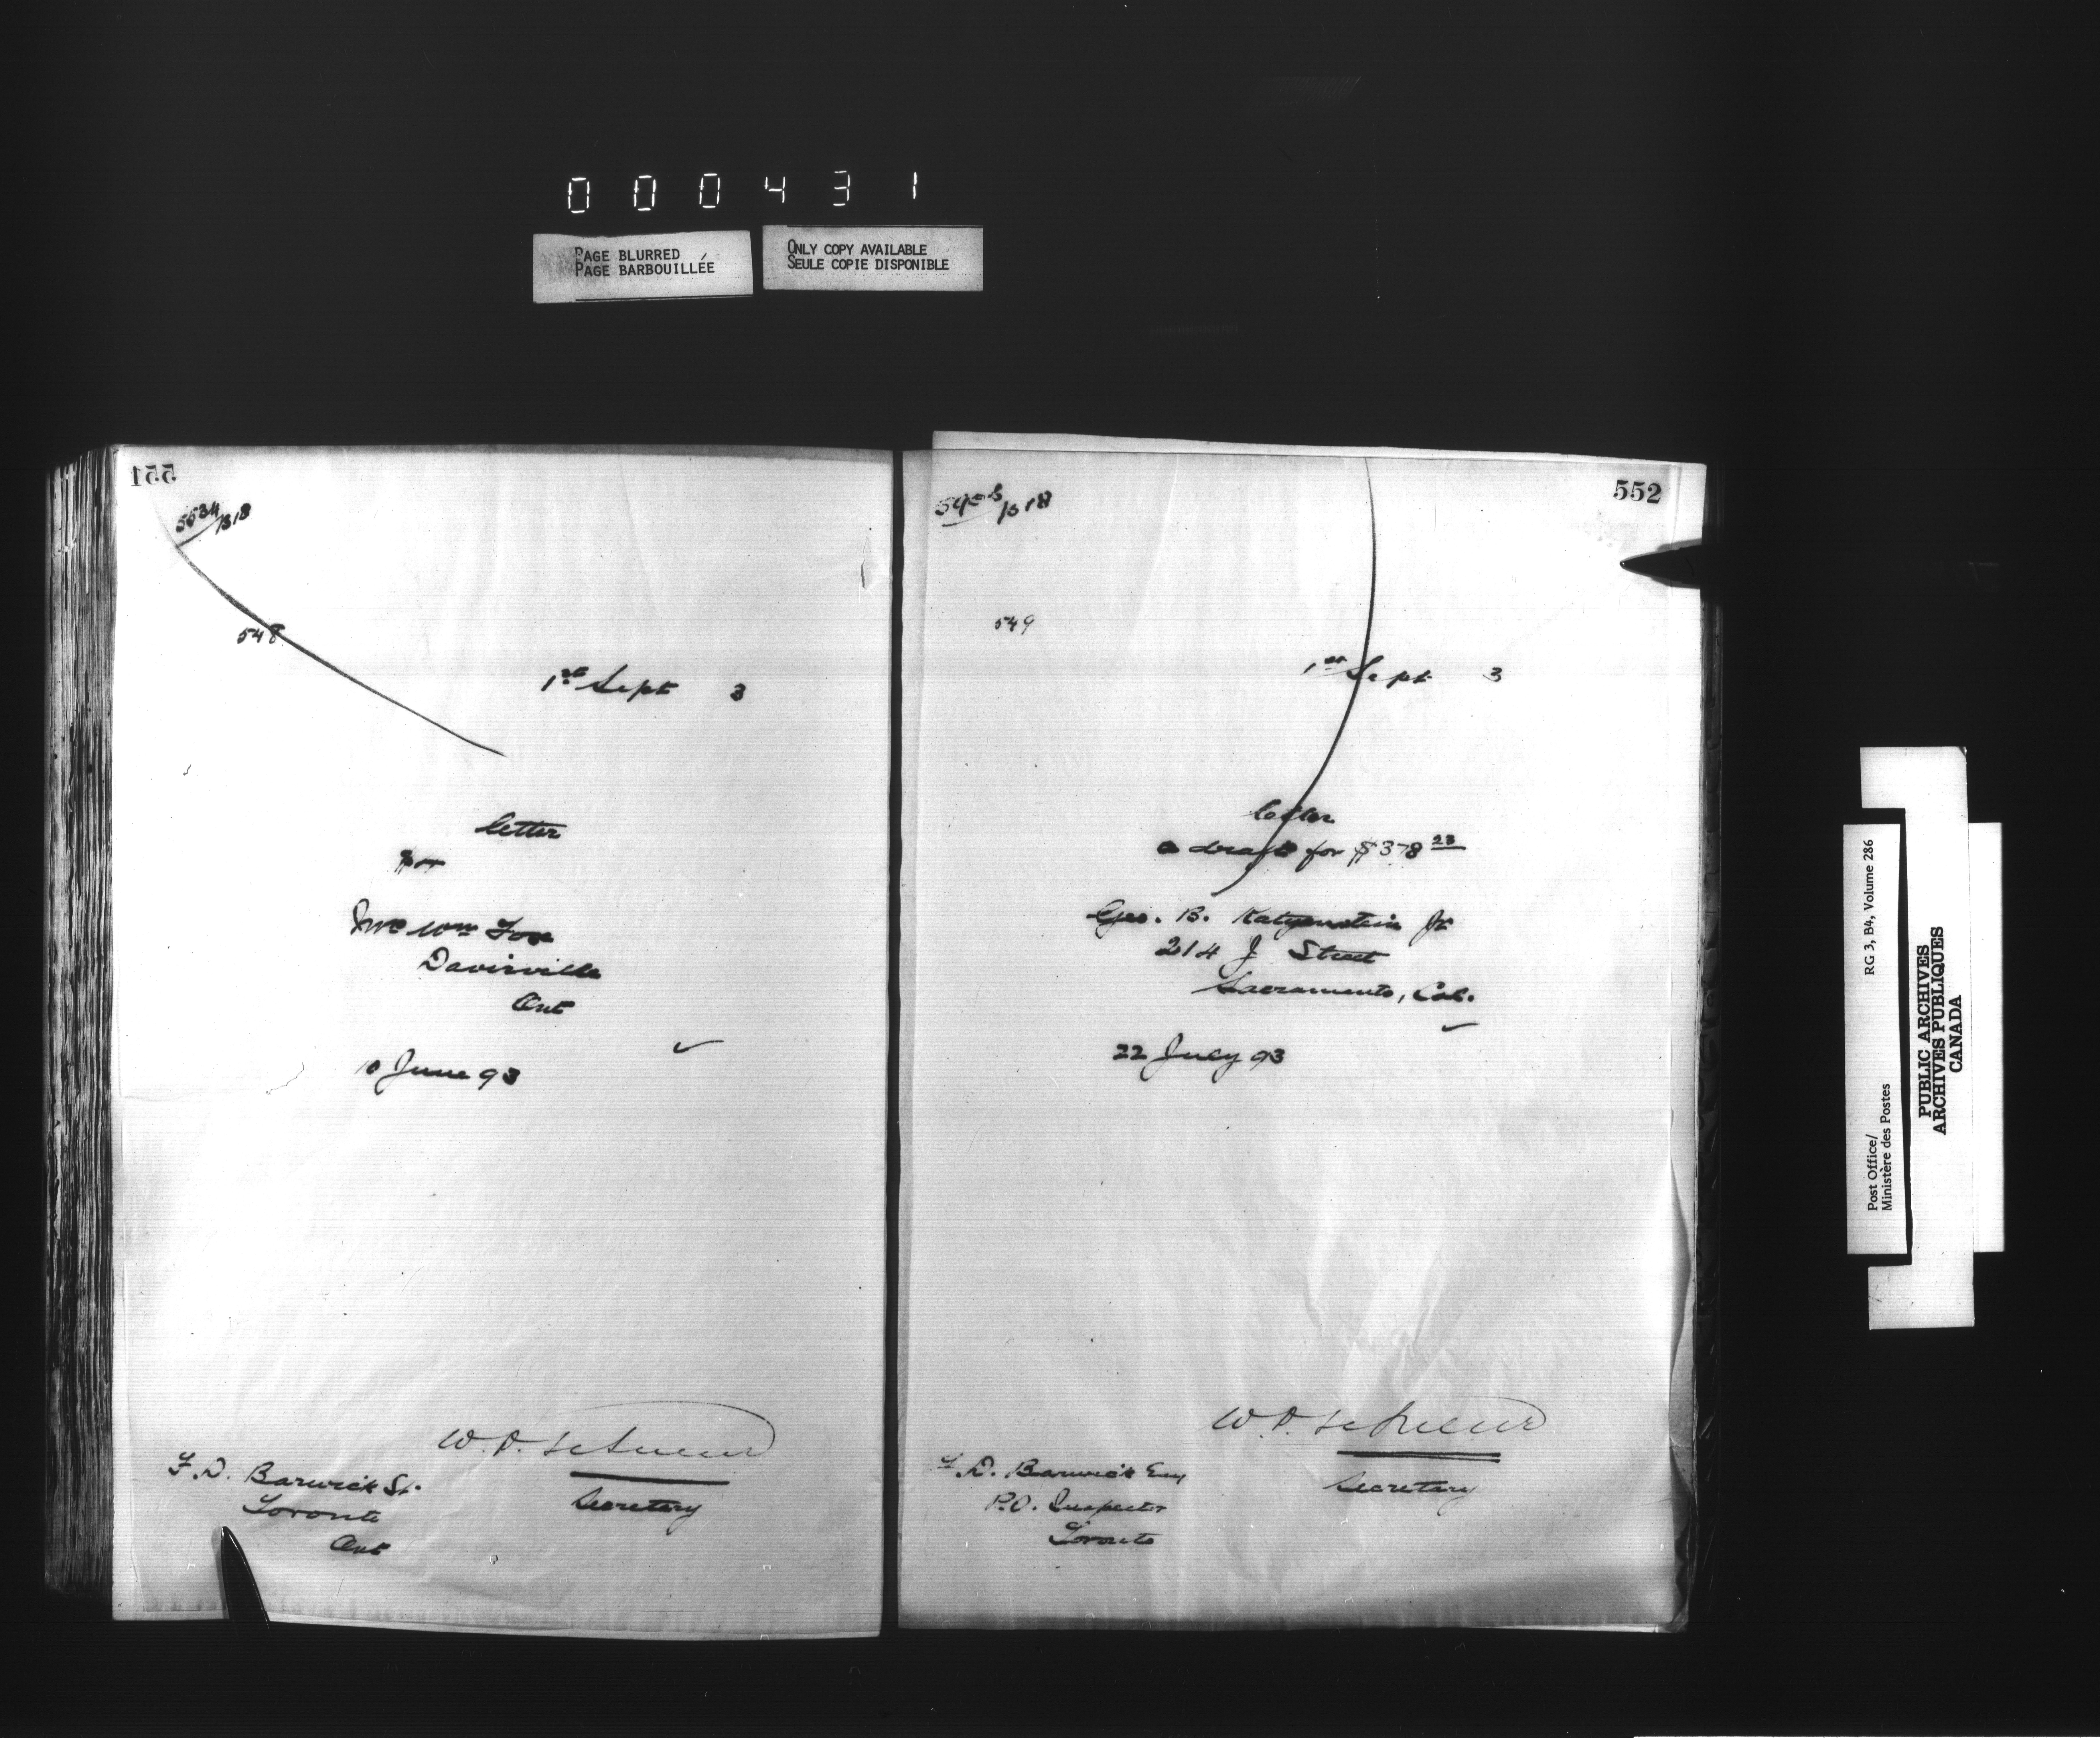 000431
PAGE BLURRED
PAGE BARBOUILLÉE
ONLY COPY AVAILABLE
SEULE COPIE DISPONIBLE
551
5534/B18
548
1st Sept 3
letter
for
Mrs Wm Fox
Davisville
Ont
10 June 93
W. D. LeSueur
Secretary
F. D. Barwick
Toronto
Ont
552
/B18
549
1st Sept 3
letter
a draft for $378 23
Geo. B. Katzenstein Jr
214 J Street
Sacramento, Cal.
22 July 93
W. D. LeSueur
Secretary
F. D. Barwick Esq
P.O. Inspector
Toronto
Post Office/
Ministère des Postes
RG 3, B4, Volume 286
PUBLIC ARCHIVES
ARCHIVES PUBLIQUES
CANADA